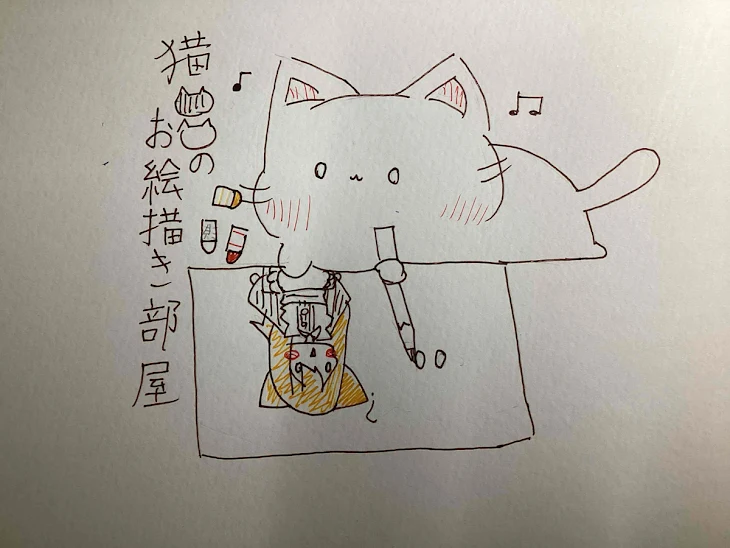 猫の
お絵描き部屋